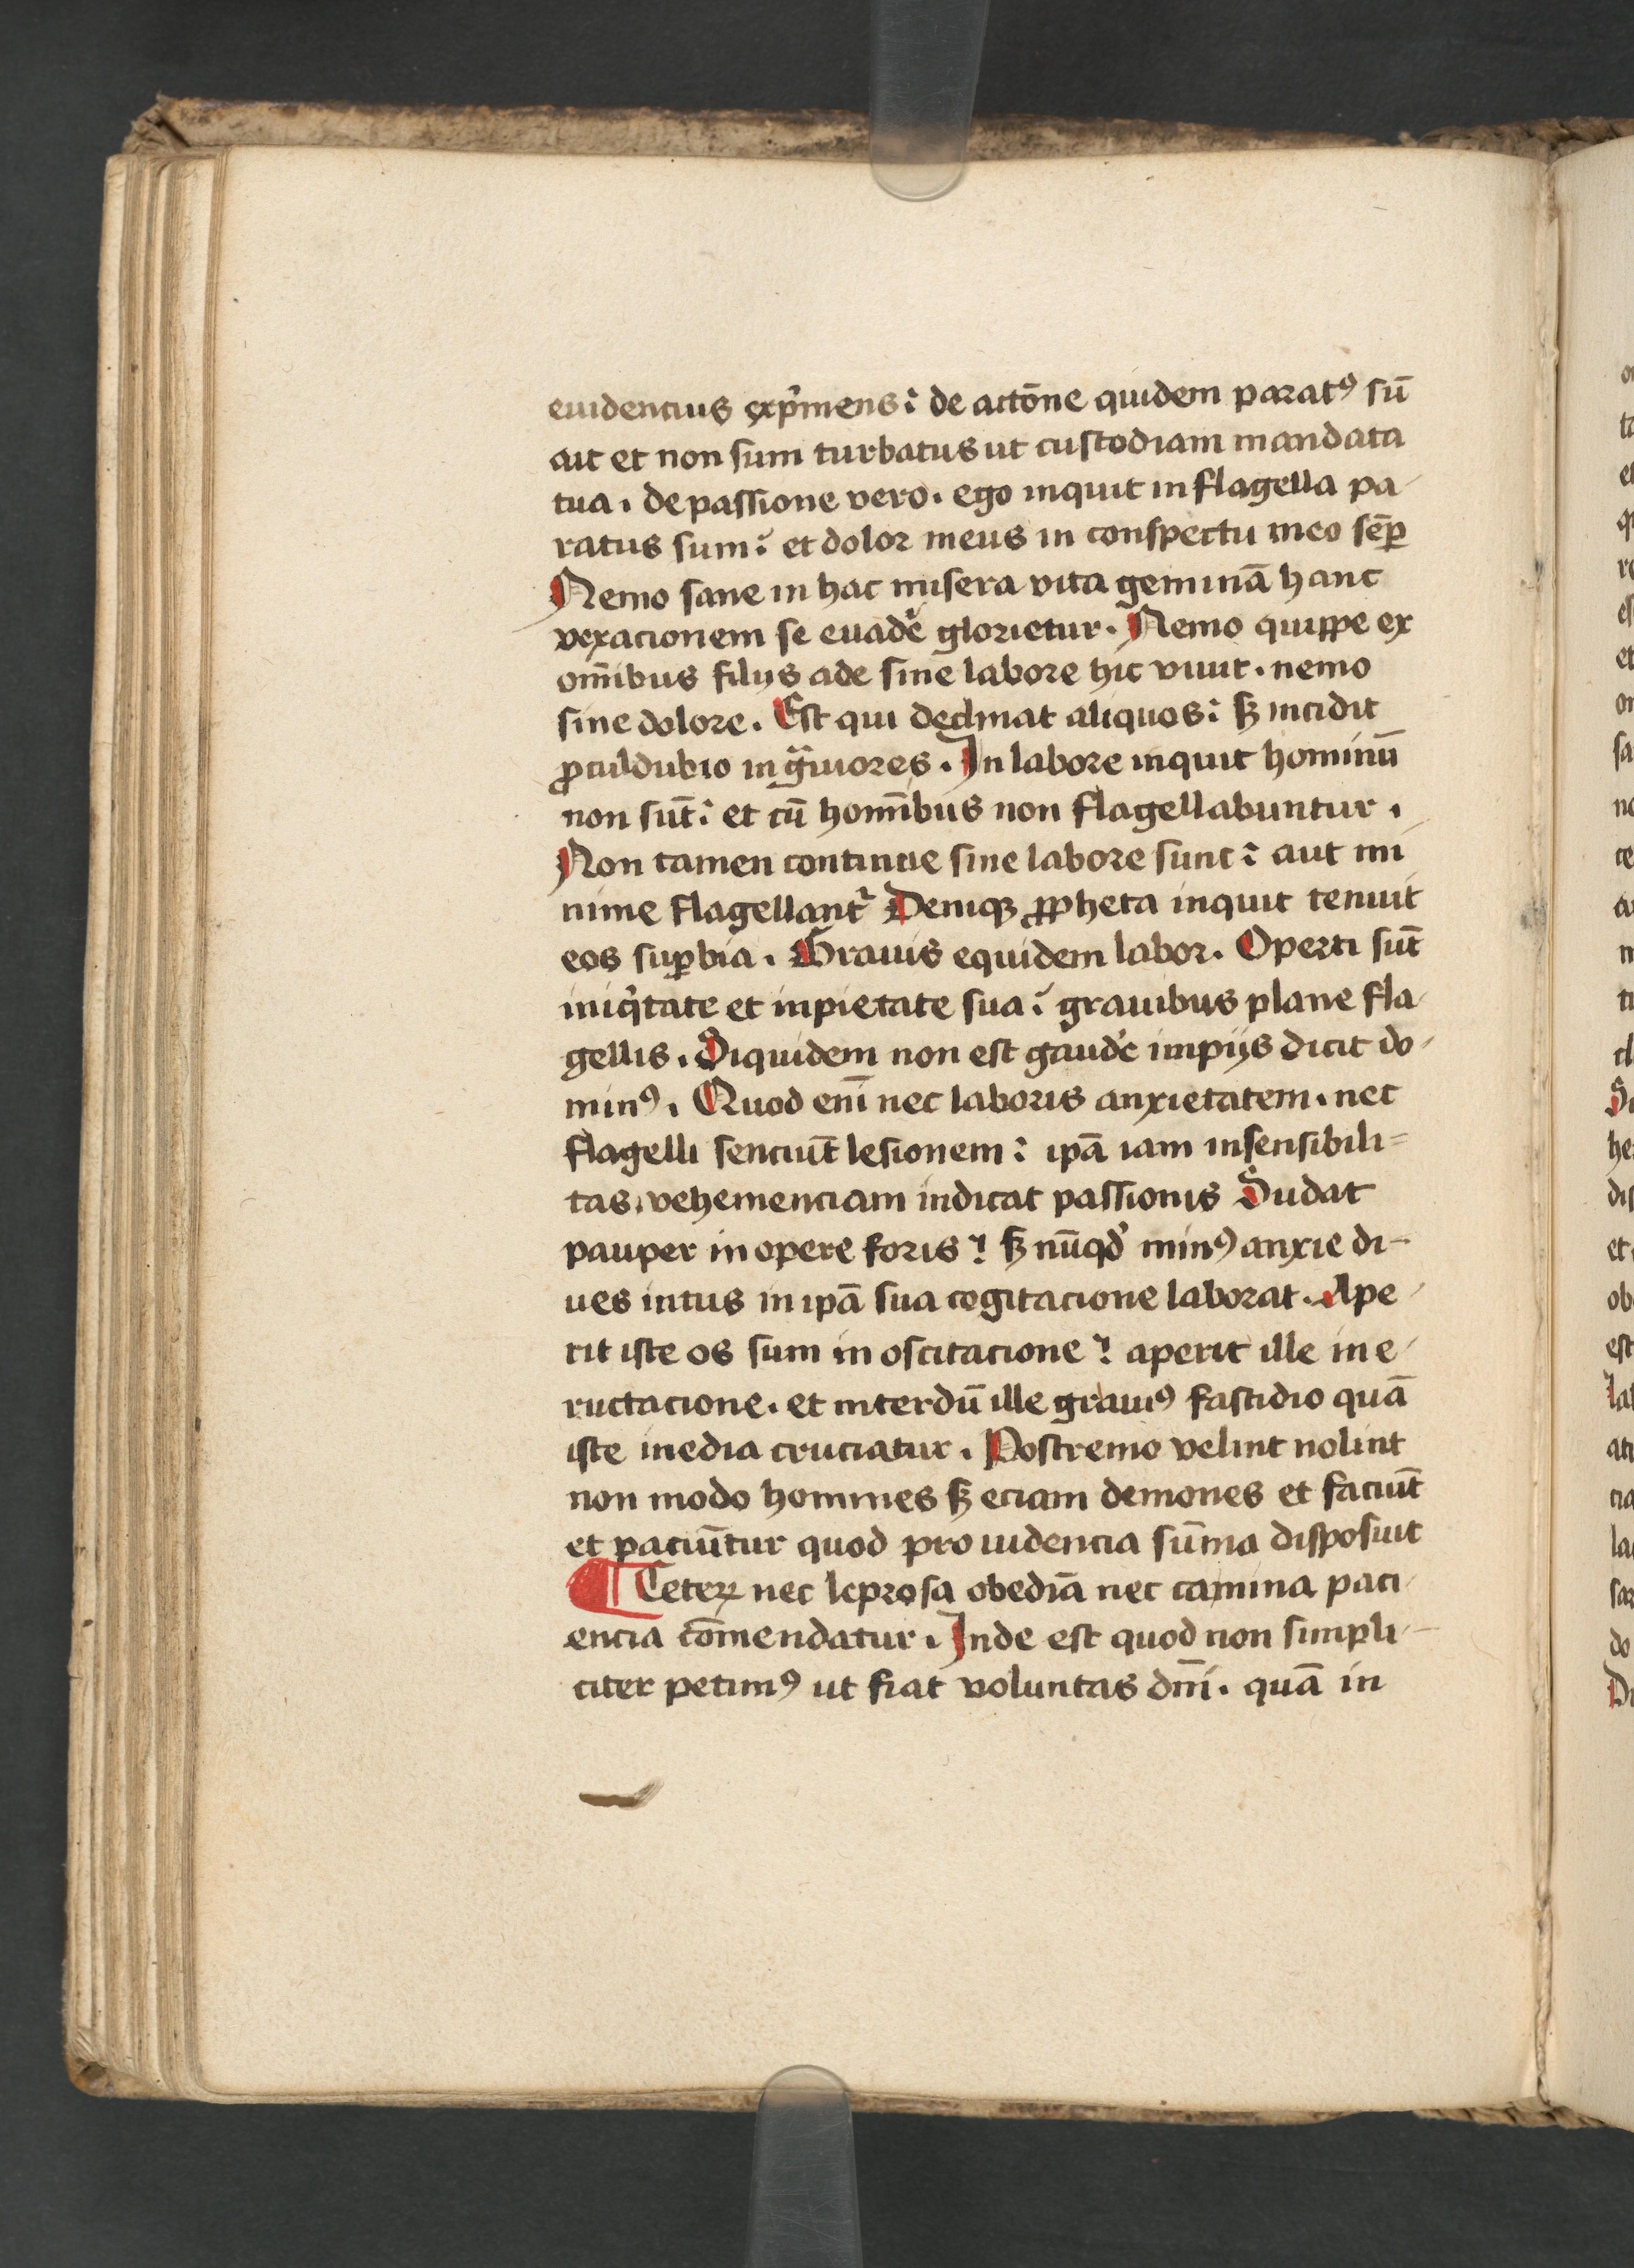 euidencius exp̾mens: de actōne quidem parat⁹ sū
ait et non sum turbatus ut custodiam mandata
tua. de passione vero. ego inquit in flagella pa
ratus sum: et dolor meus in conspectu meo sēꝑ
Nemo sane in hac misera vita geminā hanc
vexacionem se euade᷑ glorietur. Nemo quippe ex
om̄ibus filijs ade sine labore hic viuit. nemo
sine dolore. Est qui declinat aliquos: sꝫ incidit
ꝓculdubio in gᷓuiores. In labore inquit hominū
non sūt: et cū hom̄ibus non flagellabuntur.
Non tamen continue sine labore sunt: aut mi
nime flagellant᷑ Deniqꝫ ꝓpheta inquit tenuit
eos suꝑbia. Grauis equidem labor. Operti sūt
iniqͥtate et inpietate sua: grauibus plane fla
gellis. Siquidem non est gaude᷑ impijs dicit do
min⁹. Quod eni᷑ nec laboris anxietatem. nec
flagelli senciūt lesionem: ipā iam insensibili=
tas vehemenciam indicat passionis Sudat
pauper in opere foris? sꝫ nūqd᷑ min⁹ anxie di-
ues intus in ipā sua cogitacione laborat. Ape
rit iste os sum in oscitacione? aperit ille in e
ructacione. et interdū ille graui⁹ fastidio quā
iste inedia cruciatur. Postremo velint nolint
non modo homines sꝫ eciam demones et faciūt
et paciūtur quod prouidencia sūma disposuit
¶ Ceteꝝ nec leprosa obediā nec camina paci
encia cōmendatur. Inde est quod non simpli-
citer petim⁹ ut fiat voluntas dn̄i. quā in